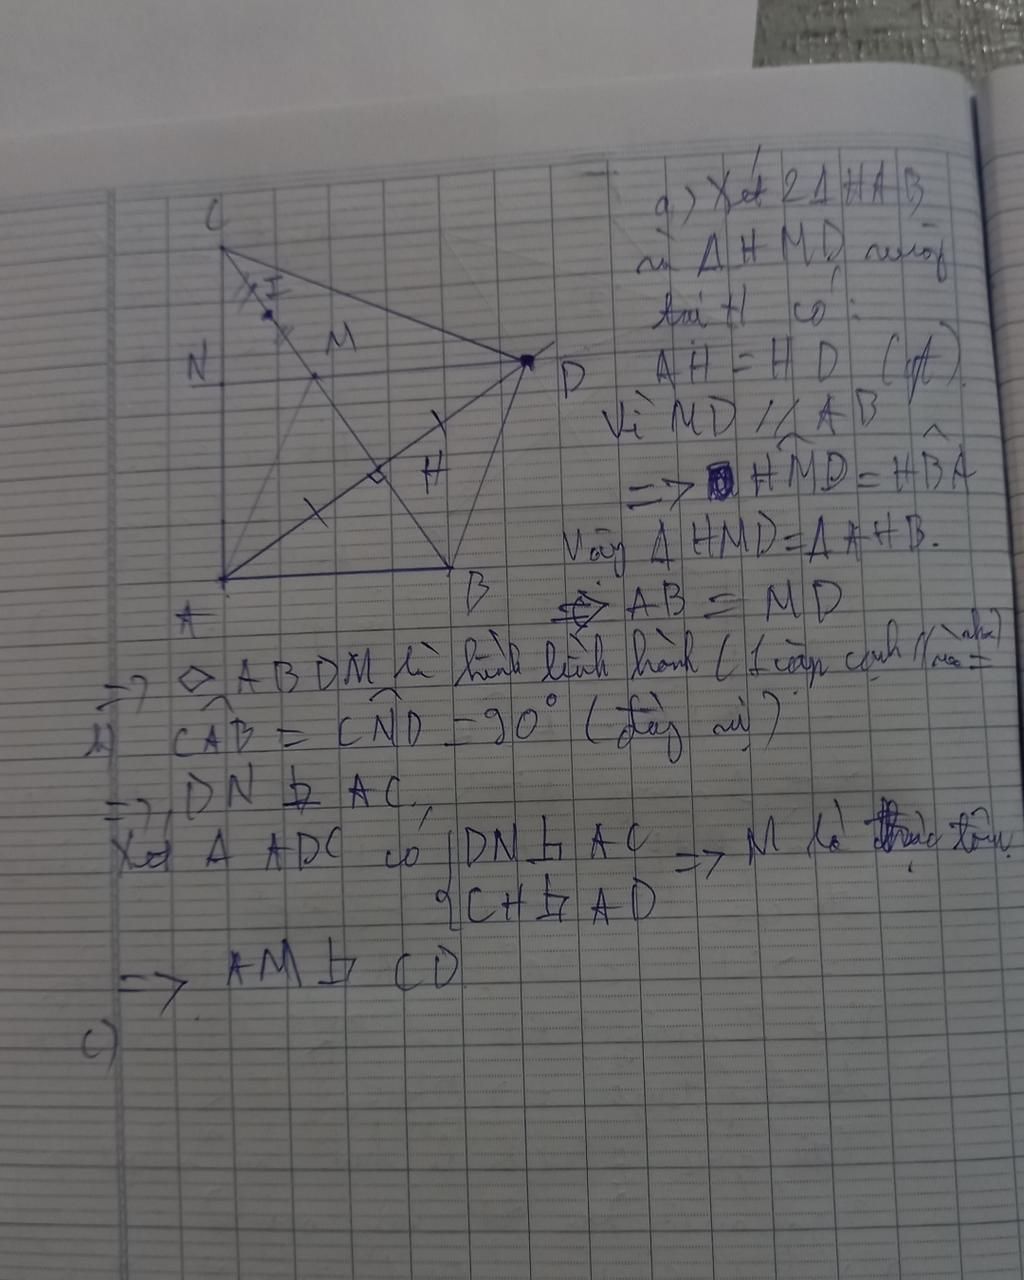 C
I
M
N
D
H
B
A
a) Xét 2 Δ HAB
và Δ HMD vuông
tại H có:
AH = HD (gt).
Vì MD // AB
=> HMD = HBA
Vậy Δ HMD = Δ AHB.
=> AB = MD
=> ABDM là hình bình hành (1 cặp cạnh // và =
b) CAB = CND = 90° (đồng vị)
=> DN ⊥ AC,
Xét Δ ADC có { DN ⊥ AC => M là trực tâm
CH ⊥ AD
=> AM ⊥ CD
c)